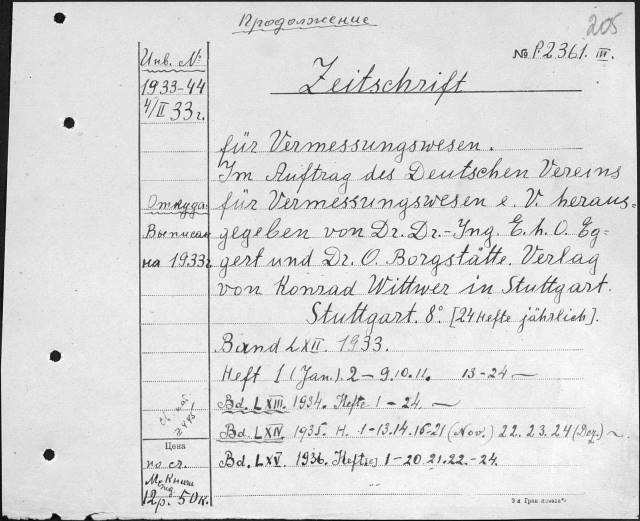 Продолжение
205
№ P.2361. IV.
Инв. №
1933-44
4/II 33 г.
Zeitschrift
für Vermessungswesen.
Im Auftrag des Deutschen Vereins
Откуда
für Vermessungswesen e. V. heraus=
Выписан
gegeben von Dr. Dr.-Ing. E. h. O. Eg=
на 1933г
gert und Dr. O. Borgstätte. Verlag
von Konrad Wittwer in Stuttgart.
Stuttgart. 8° [24 Hefte jährlich].
Band LXII. 1933.
Heft 1 (Jan.). 2-9. 10. 11. 13-24 ~
Bd. LXIII. 1934. Hefte 1-24. ~
Bd. LXIV. 1935. H. 1-13. 14. 15-21 (Nov.) 22. 23. 24 (Dez.) ~
Цена
Bd. LXV. 1936. Hefte 1-20. 21. 22.-24.
по сч.
12 р. 50 к.